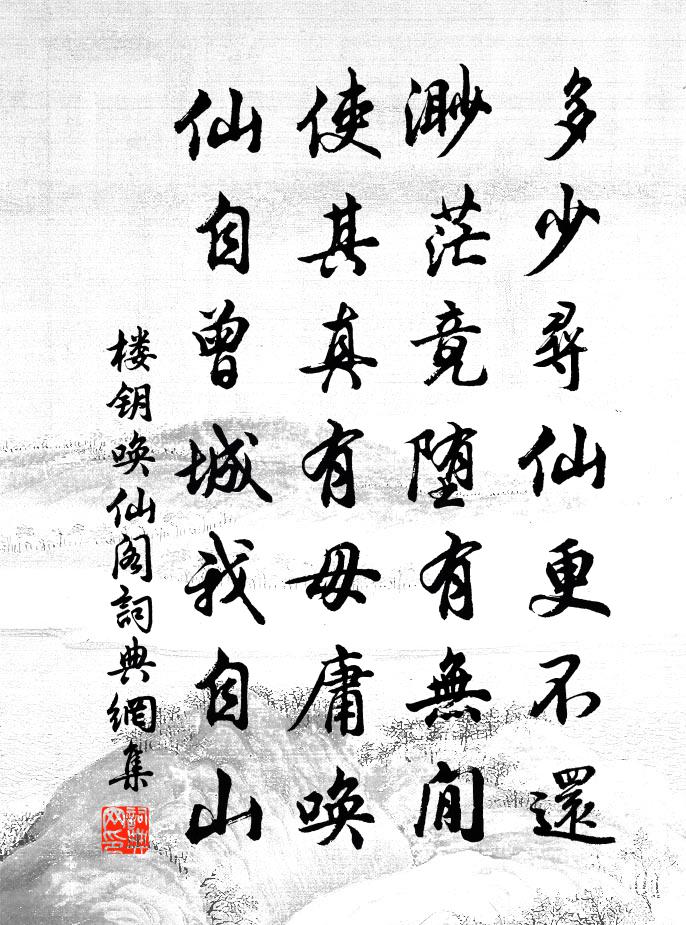 多少尋仙更不還
渺茫竟堕有無間
使其真有毋庸唤
仙自曾城我自山
楼钥唤仙阁詞典網集
詞典网印